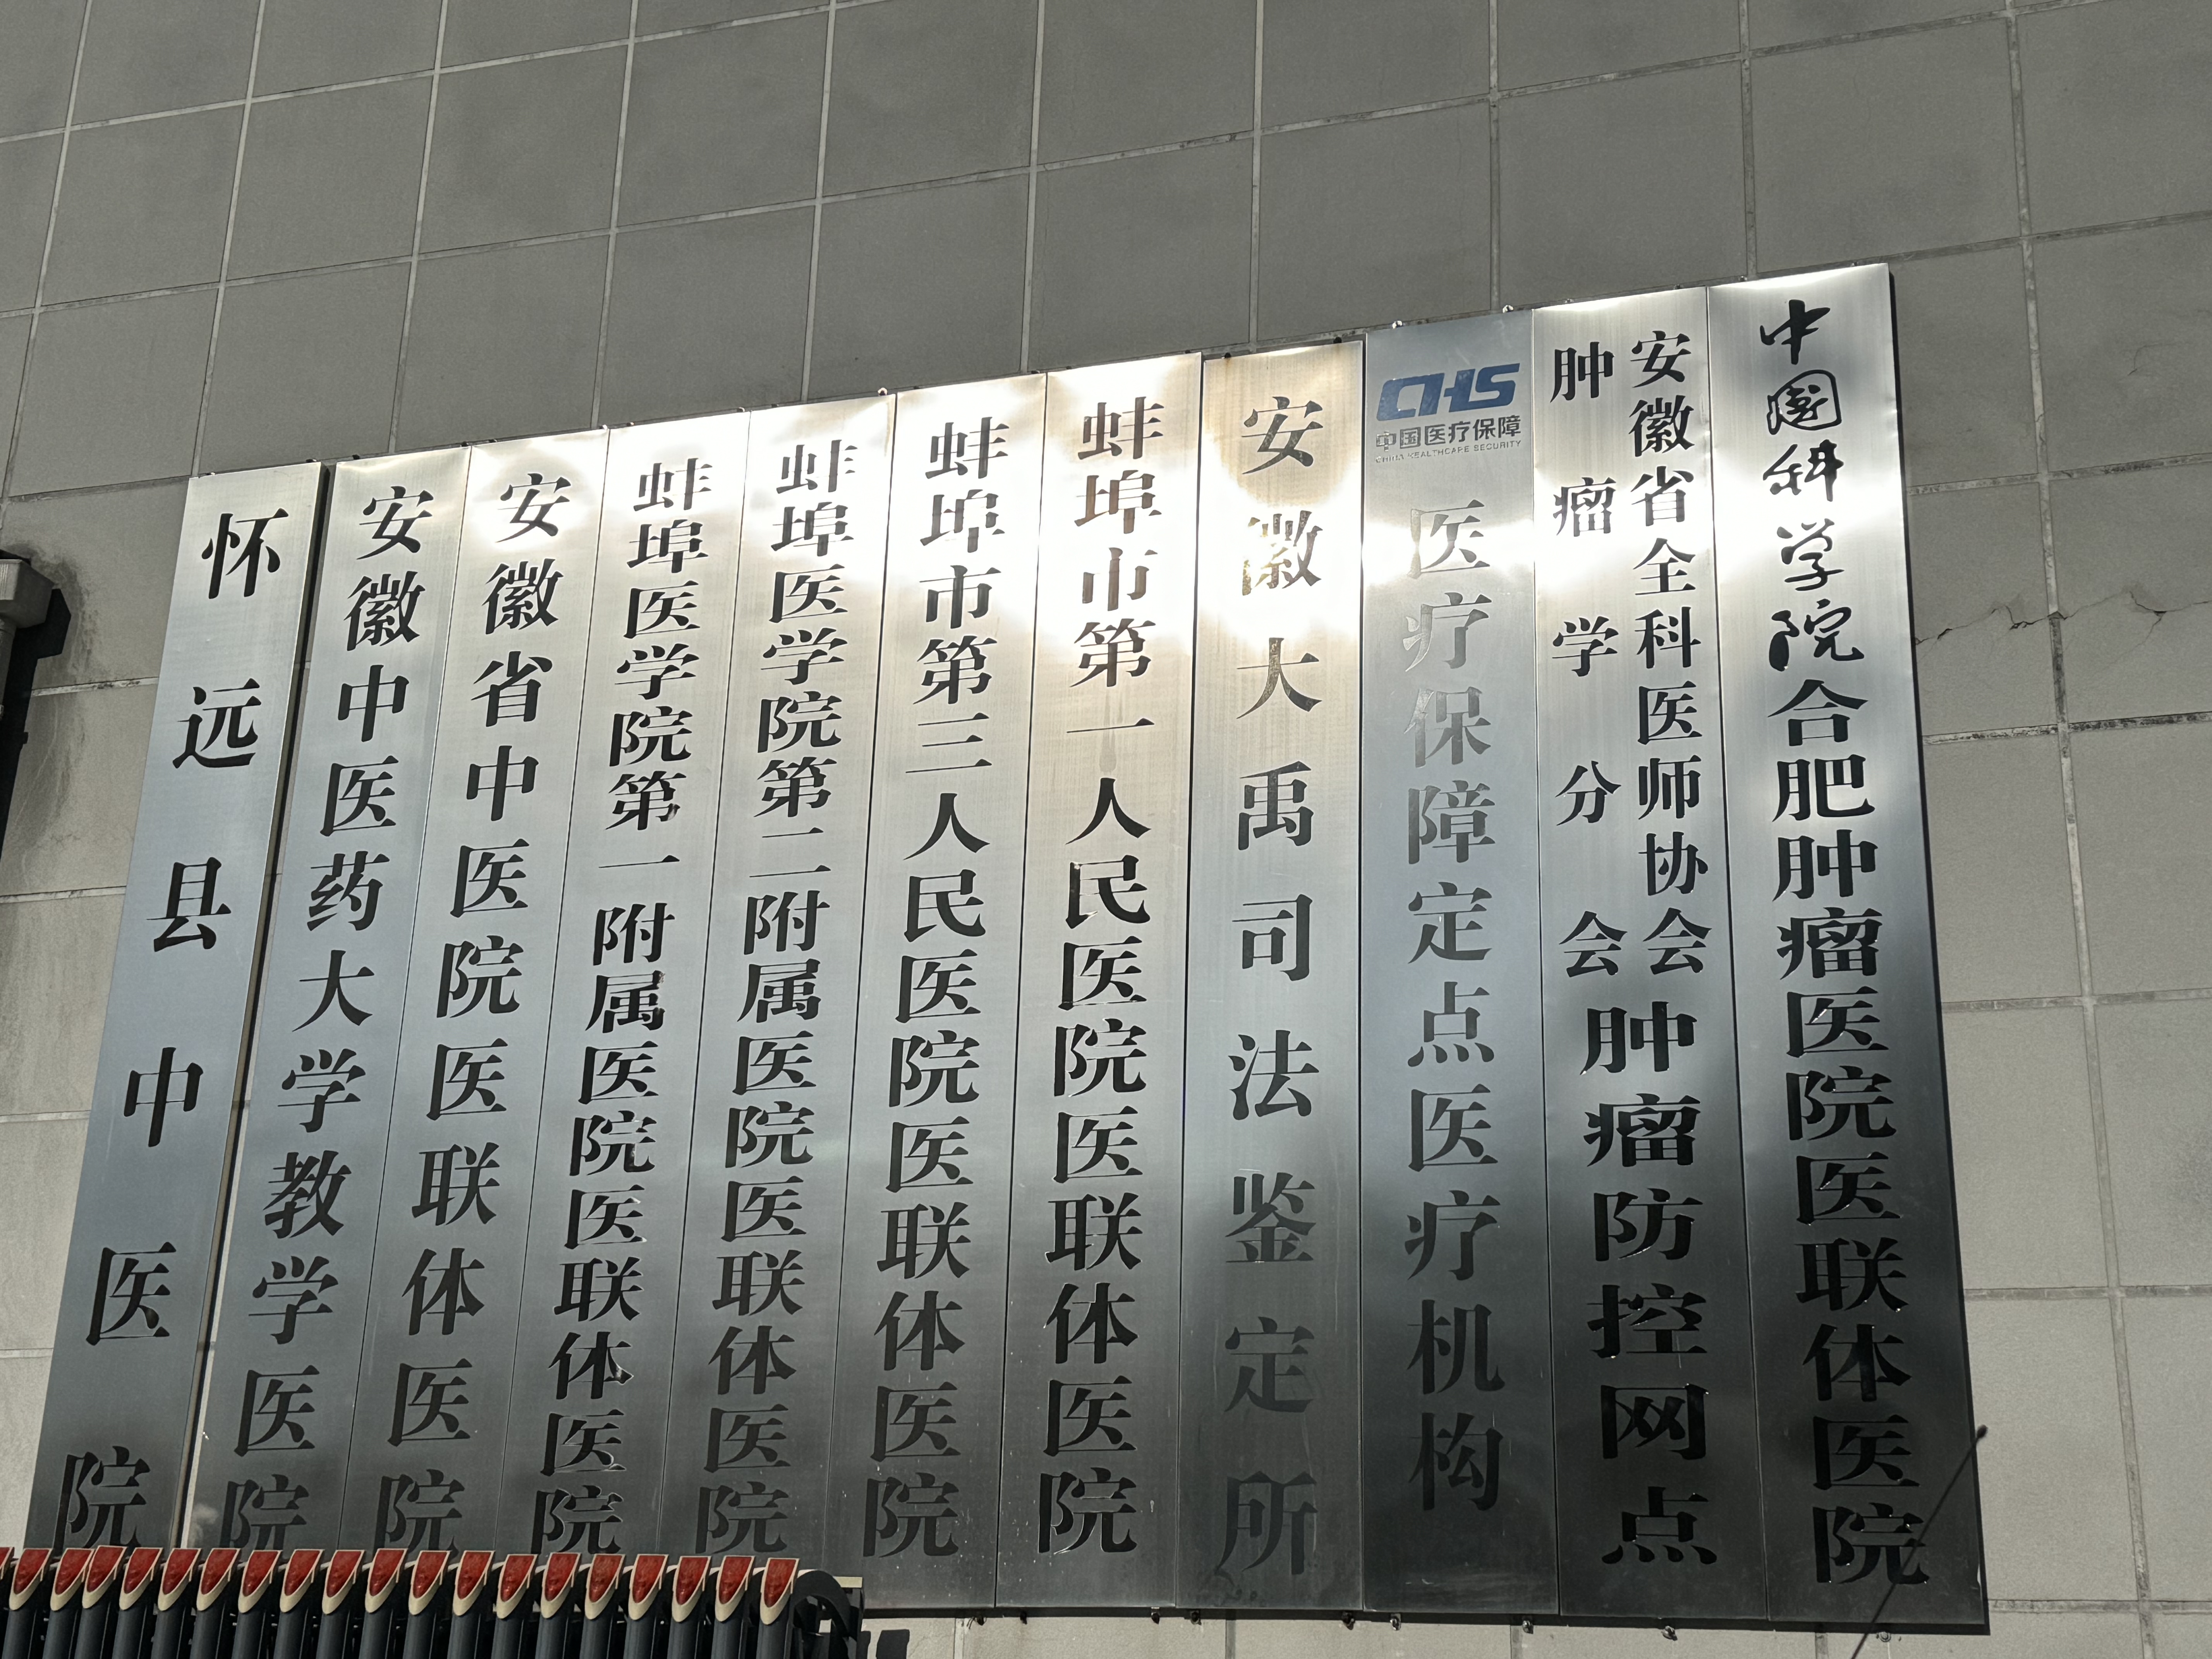 怀远县中医院
安徽中医药大学教学医院
安徽省中医院医联体医院
蚌埠医学院第一附属医院医联体医院
蚌埠医学院第二附属医院医联体医院
蚌埠市第三人民医院医联体医院
蚌埠市第一人民医院医联体医院
安徽大禹司法鉴定所
CHS
中国医疗保障
CHINA HEALTHCARE SECURITY
医疗保障定点医疗机构
安徽省全科医师协会
肿瘤学分会
肿瘤防控网点
中国科学院合肥肿瘤医院医联体医院